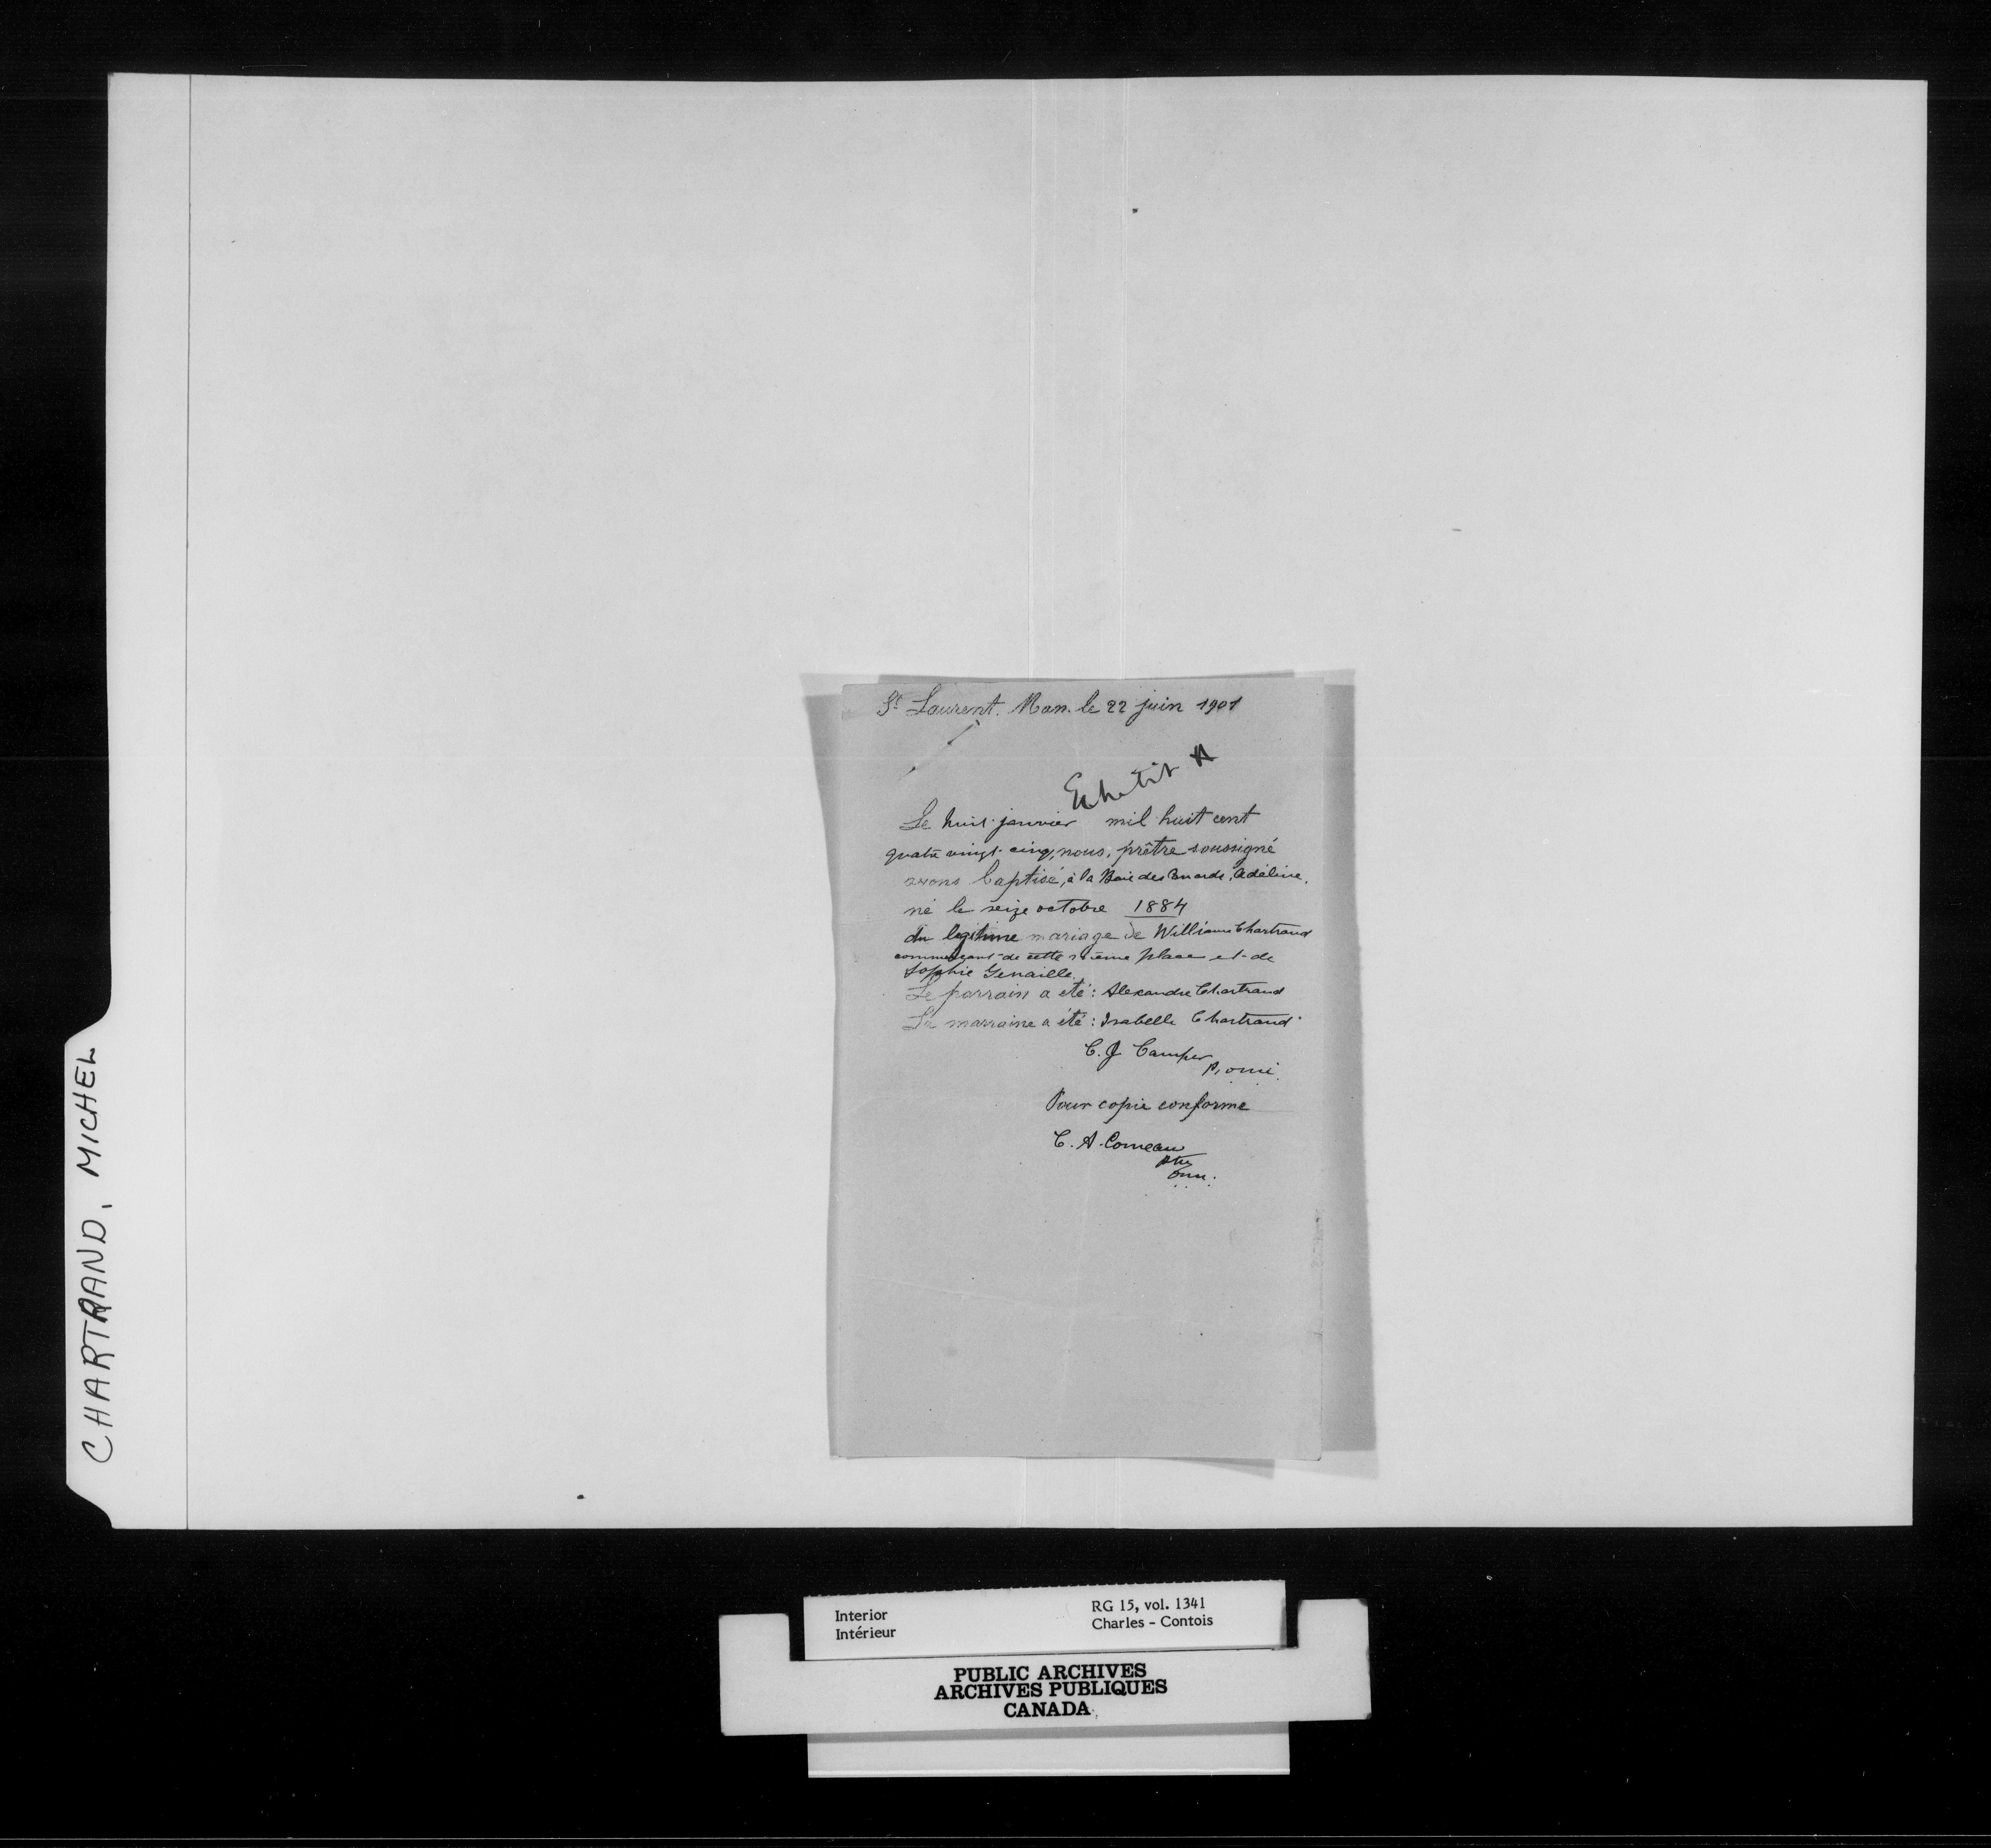 CHARTRAND, MICHEL
St Laurent. Man. le 22 juin 1901
Exhibit A
Le huit janvier mil huit cent
quatre vingt-cinq, nous, prêtre soussigné
avons baptisé, à la Baie des Canards, Adéline,
né le seize octobre 1884
du legitime mariage de William Chartrand
commerçant de cette même place et de
Sophie Genaille.
Le parrain a été : Alexandre Chartrand
La marraine a été : Isabelle Chartrand
C. J Camper
p. omi.
Pour copie conforme
C. A. Comeau
ptre
omi.
Interior
Intérieur
RG 15, vol. 1341
Charles - Contois
PUBLIC ARCHIVES
ARCHIVES PUBLIQUES
CANADA